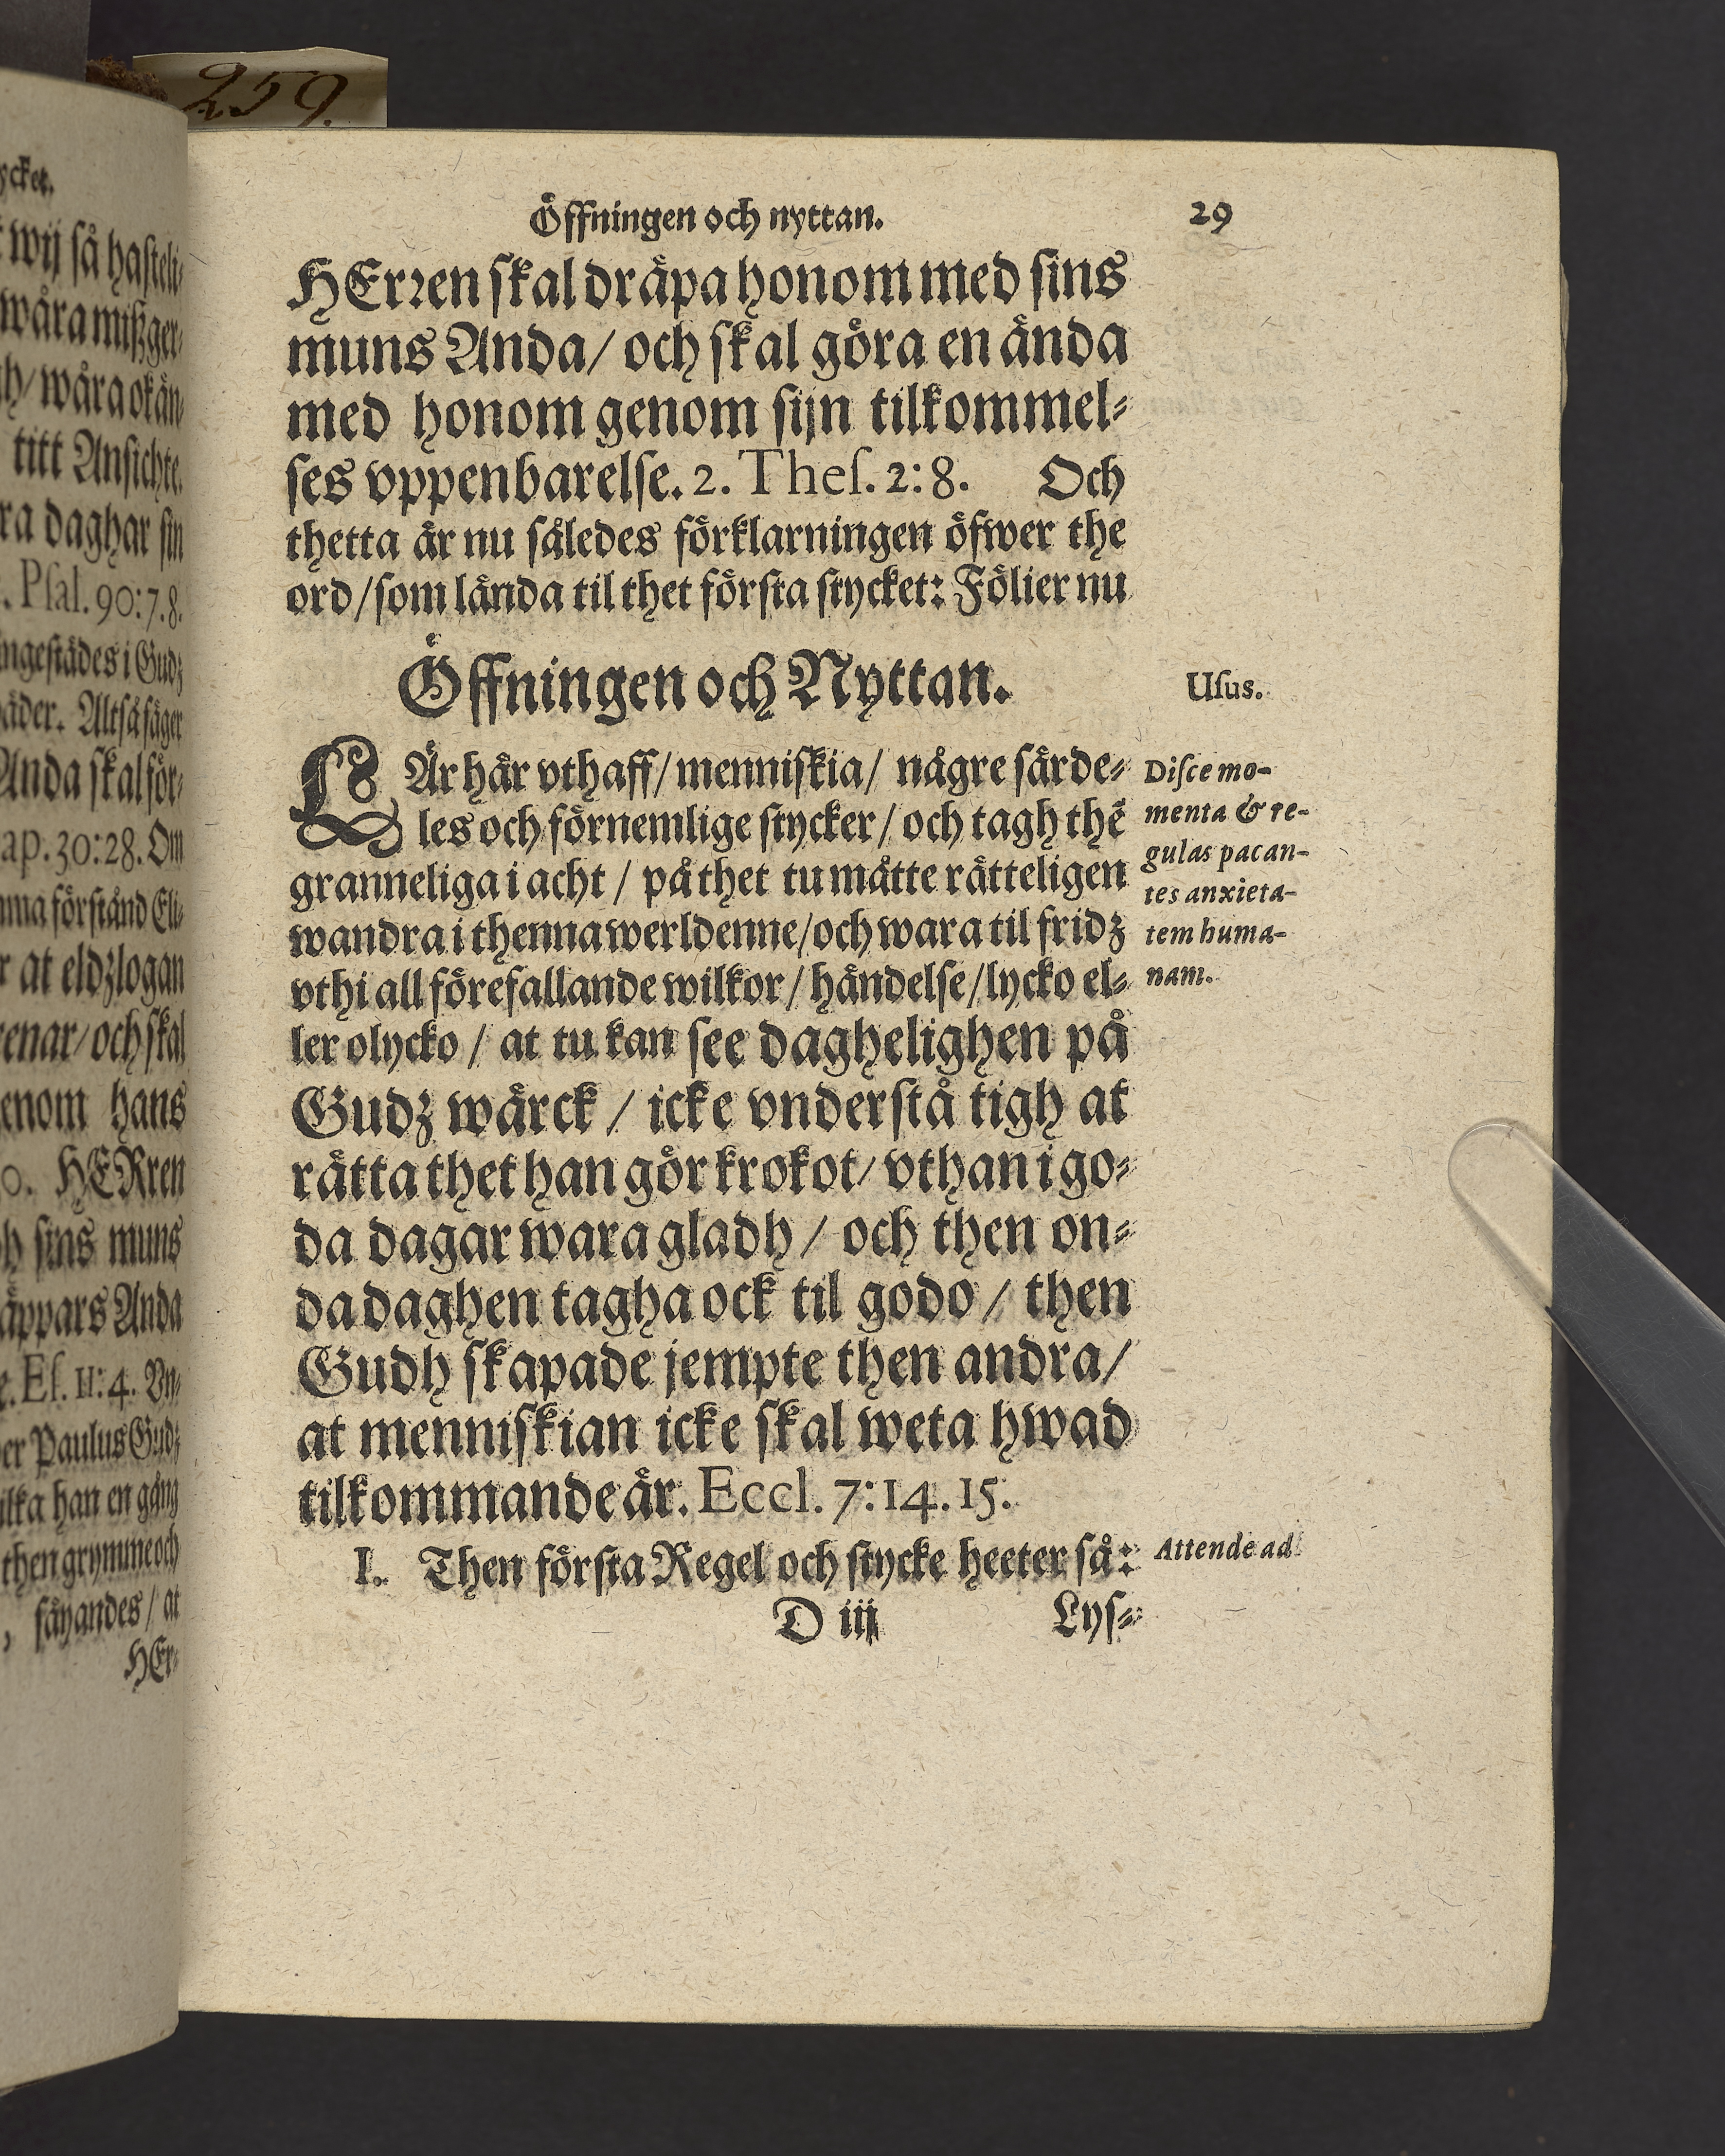 259.
ycket.
wij så hasteli⸗
wåra mißger⸗
gh/ wåra okän⸗
titt Ansichte.
ra daghar sin
. Psal. 90:7.8.
ingestädes i Gudz
säger
Anda skal för⸗
ap. 30:28. Om
förstånd Eli⸗
r at eldzlogan
renar/ och skal
enom hans
0. HERren
sins muns
äppars Anda
e. Es. 11:4. Vn⸗
er Paulus Gudz
ilka han en gång
then grymme och
, säyandes / at
HEr⸗
Öffningen och nyttan. 29
HErꝛen skal dräpa honom med sins
muns Anda/ och skal göra en ända
med honom genom sijn tilkommel⸗
ses vppenbarelse. 2. Thes. 2:8. Och
thetta är nu således förklarningen öfwer the
ord/ som lända til thet första stycket: Fölier nu
Öffningen och Nyttan.
Usus.
LÄr här vthaff/ menniskia/ någre särde⸗
les och förnemlige stycker / och tagh thē
granneliga i acht / på thet tu måtte rätteligen
wandra i thenna werldenne/ och wara til fridz
vthi all förefallande wilkor / händelse / lycko el⸗
ler olycko / at tu kan see daghelighen på
Gudz wärck / icke vnderstå tigh at
rätta thet han gör krokot/ vthan i go⸗
da dagar wara gladh / och then on⸗
da daghen tagha ock til godo / then
Gudh skapade jempte then andra/
at menniskian icke skal weta hwad
tilkommande är. Eccl. 7:14.15.
I. Then första Regel och stycke heeter så:
D iij Lys⸗
Disce mo-
menta & re-
gulas pacan-
tes anxieta-
tem huma-
nam.
Attende ad